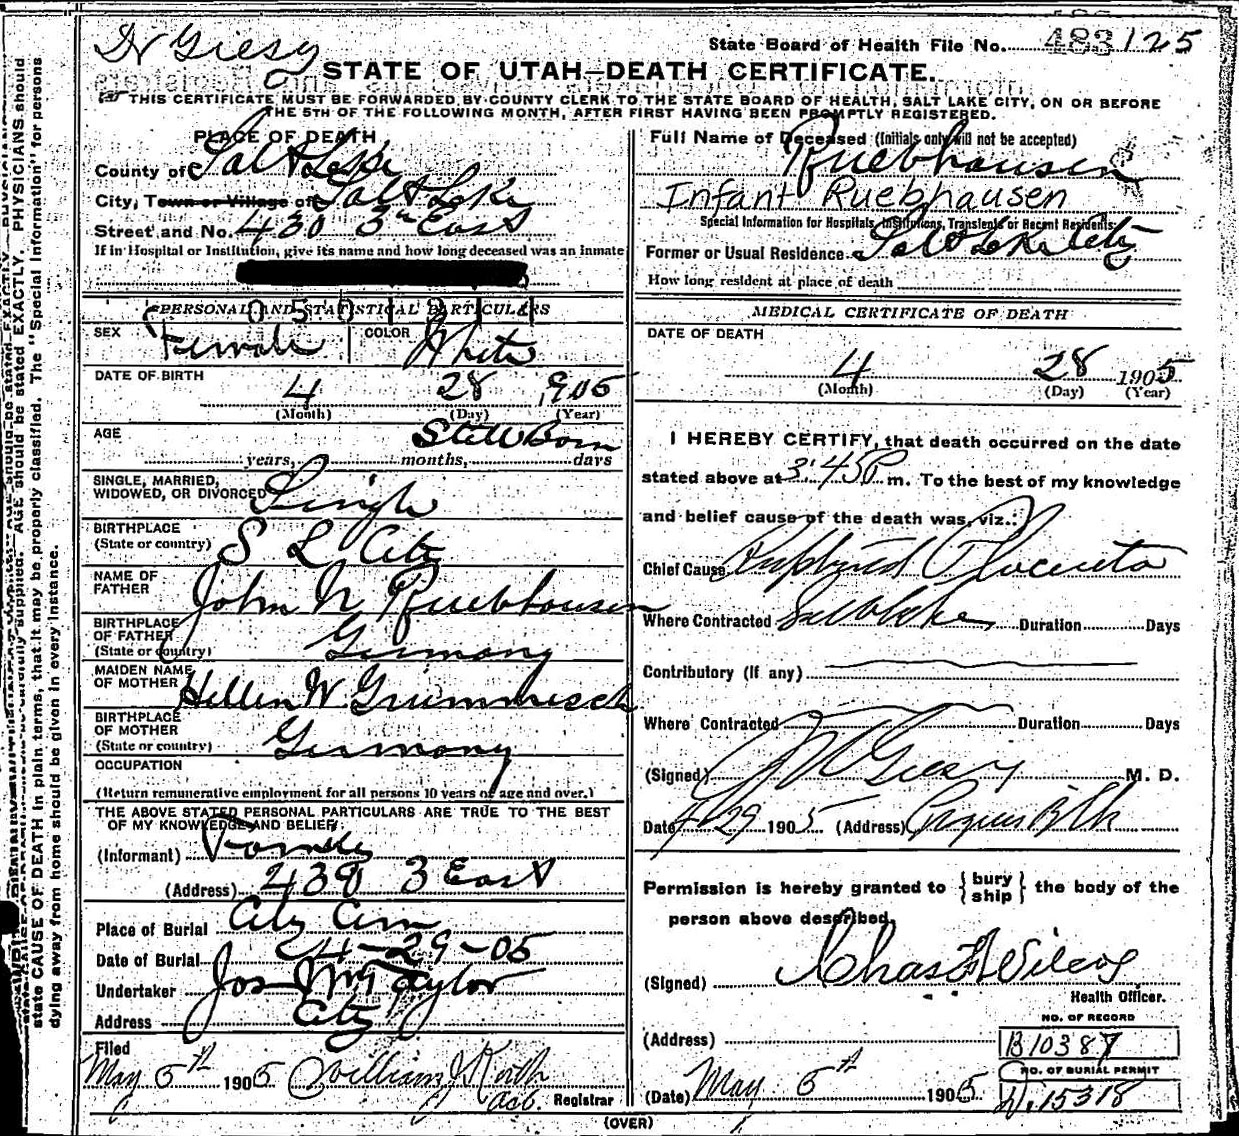 Dr Giesy
State Board of Health File No. 483 125
STATE OF UTAH—DEATH CERTIFICATE.
THIS CERTIFICATE MUST BE FORWARDED BY COUNTY CLERK TO THE STATE BOARD OF HEALTH, SALT LAKE CITY, ON OR BEFORE
THE 5TH OF THE FOLLOWING MONTH, AFTER FIRST HAVING BEEN PROMPTLY REGISTERED.
PLACE OF DEATH
County of Salt Lake
City, Town or Village of Salt Lake
Street and No. 430 3rd East
If in Hospital or Institution, give its name and how long deceased was an inmate
PERSONAL AND STATISTICAL PARTICULARS
SEX Female COLOR White
DATE OF BIRTH 4 28 1905
(Month) (Day) (Year)
AGE Still Born
years, months, days
SINGLE, MARRIED,
WIDOWED, OR DIVORCED Single
BIRTHPLACE
(State or country) S L City
NAME OF
FATHER John N Ruebhausen
BIRTHPLACE
OF FATHER
(State or country) Germany
MAIDEN NAME
OF MOTHER Hellen W Grummisch
BIRTHPLACE
OF MOTHER
(State or country) Germany
OCCUPATION
(Return remunerative employment for all persons 10 years of age and over.)
THE ABOVE STATED PERSONAL PARTICULARS ARE TRUE TO THE BEST
OF MY KNOWLEDGE AND BELIEF,
(Informant) Family
(Address) 430 3 East
Place of Burial City Cem
Date of Burial 4-29-05
Undertaker Jos Wm Taylor
Address City
Filed
May 5th 1905 William J Korth
Registrar
Full Name of Deceased (Initials only will not be accepted)
Ruebhausen
Infant Ruebhausen
Special Information for Hospitals, Institutions, Transients or Recent Residents:
Former or Usual Residence Salt Lake City
How long resident at place of death
MEDICAL CERTIFICATE OF DEATH
DATE OF DEATH
4 28 1905
(Month) (Day) (Year)
I HEREBY CERTIFY, that death occurred on the date
stated above at 3:45 P m. To the best of my knowledge
and belief cause of the death was, viz.:
Chief Cause Ruptured Placenta
Where Contracted Salt Lake Duration Days
Contributory (If any)
Where Contracted Duration Days
(Signed) Giesy M. D.
Date 4-29 1905 (Address) Progress Blk
Permission is hereby granted to { bury ship } the body of the
person above described.
(Signed) Chas F Wilcox
Health Officer.
NO. OF RECORD
(Address) B10387
NO. OF BURIAL PERMIT
(Date) May 5th 1905 D.15318
(OVER)
state CAUSE OF DEATH in plain terms, that it may be properly classified. The "Special Information" for persons
dying away from home should be given in every instance.